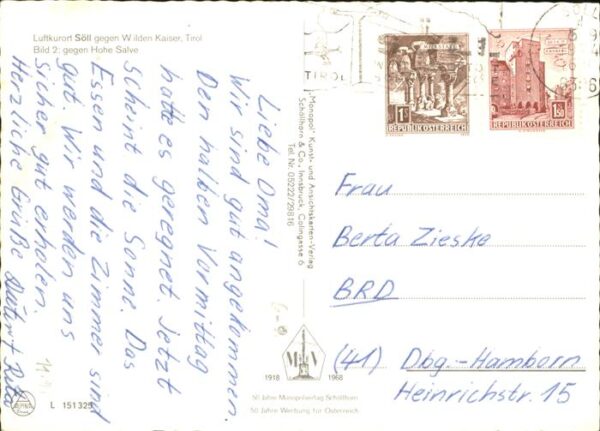 Luftkurort Söll gegen Wilden Kaiser, Tirol
Bild 2: gegen Hohe Salve
Liebe Oma!
Wir sind gut angekommen.
Den halben Vormittag
hat es geregnet. Jetzt
scheint die Sonne. Das
Essen und die Zimmer sind
gut. Wir werden uns
sicher gut erholen.
Herzliche Grüße
„Monopol" Kunst- und Ansichtskarten-Verlag
Schöllhorn & Co., Innsbruck, Colingasse 6
Tel. Nr. 05222/29816
TIROL
1S
REPUBLIK ÖSTERREICH
1.50
REPUBLIK ÖSTERREICH
Frau
Berta Zieske
BRD
(41) Dbg.-Hamborn
Heinrichstr. 15
1918 MV 1968
50 Jahre Monopolverlag Schöllhorn
50 Jahre Werbung für Österreich
L 151325